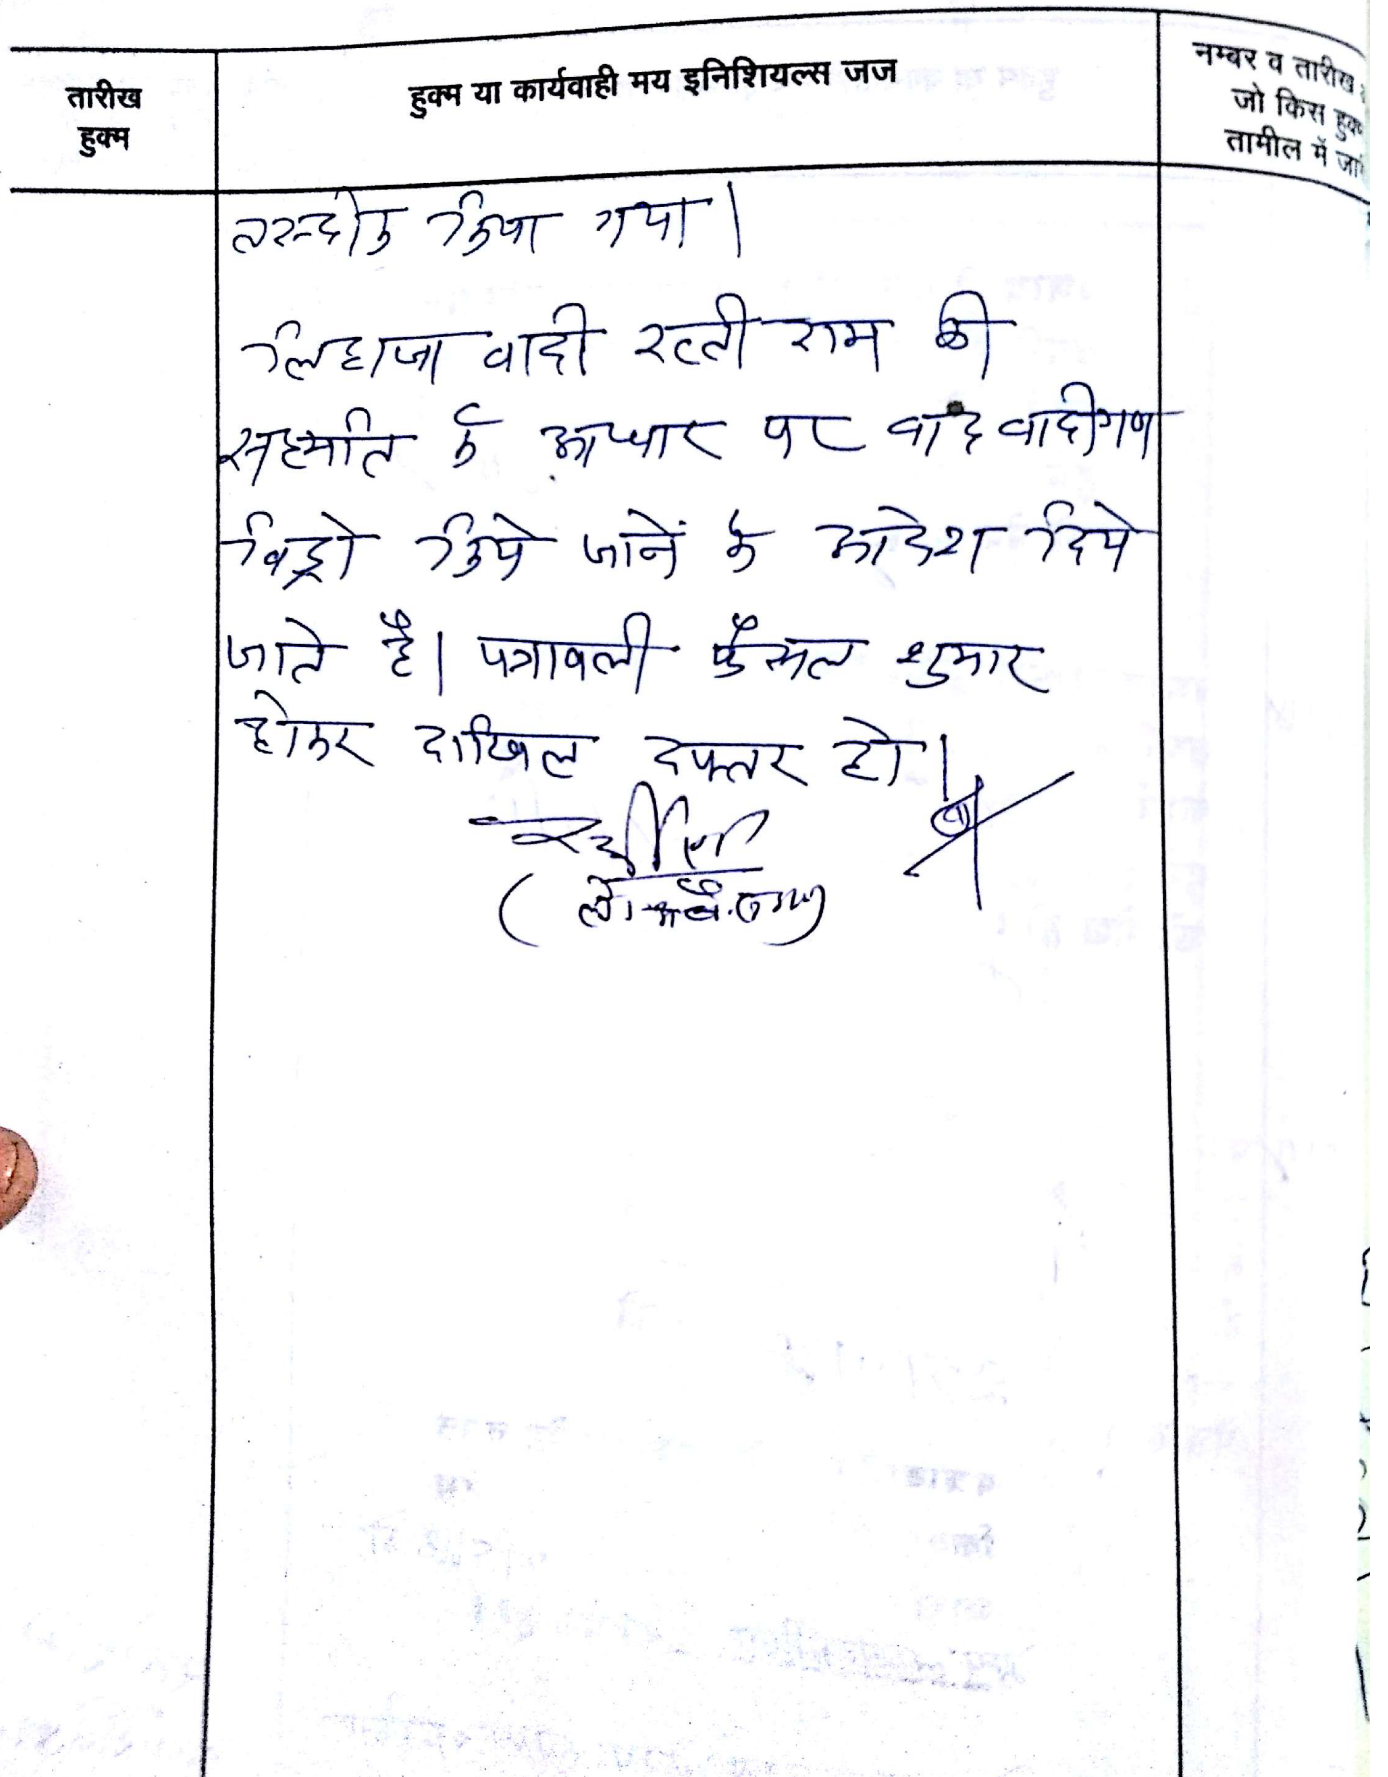 तारीख
हुक्म
हुक्म या कार्यवाही मय इनिशियल्स जज
नम्बर व तारीख
जो किस हुक्म
तामील में
तस्दीक किया गया।
लिहाजा वादी रत्ती राम की
सहमति के आधार पर वाद वादीगण
विड्रो किये जानें के आदेश दिये
जाते है। पत्रावली फैसल शुमार
होकर दाखिल दफ्तर हो।